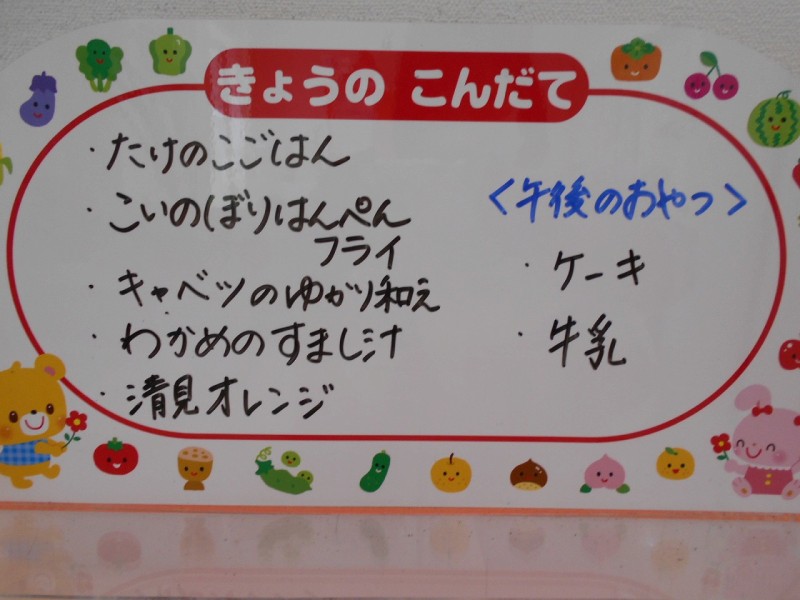 きょうの こんだて
・たけのこごはん
・こいのぼりはんぺん
フライ
・キャベツのゆかり和え
・わかめのすまし汁
・清見オレンジ
<午後のおやつ>
・ケーキ
・牛乳